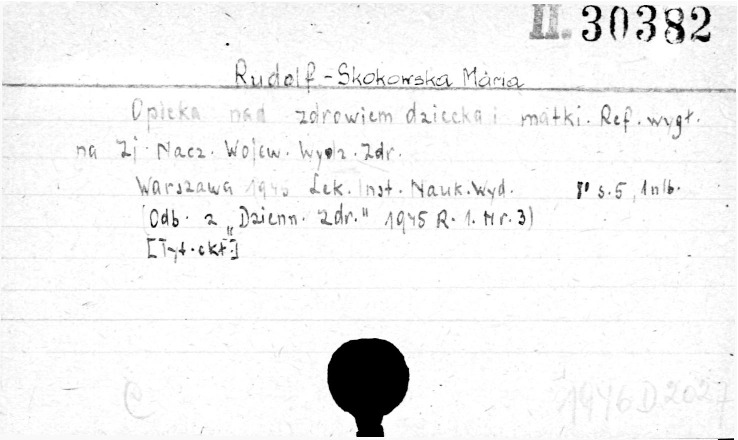 II. 30382
Rudolf-Skokowska Maria
Opieka nad zdrowiem dziecka i matki. Ref. wygł.
na Zj. Nacz. Wojew. Wydz. Zdr.
Warszawa 1946 Lek. Inst. Nauk. Wyd. 8° s. 5, 1 nlb.
(Odb. z „Dzienn. Zdr." 1945 R. 1. Nr. 3)
[Tyt. okł.]
C 1946 D 2027